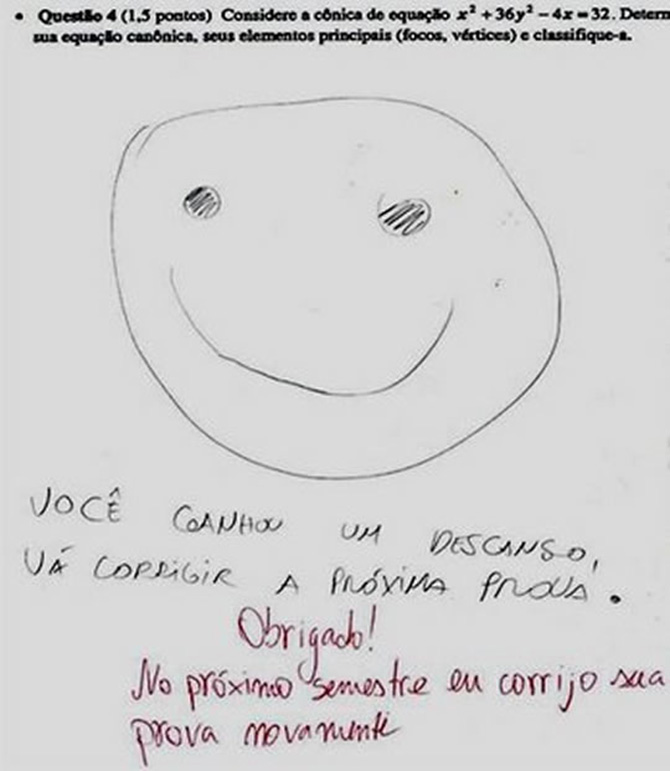 • Questão 4 (1,5 pontos) Considere a cônica de equação x² + 36y² – 4x = 32. Determ
sua equação canônica, seus elementos principais (focos, vértices) e classifique-a.
VOCÊ GANHOU UM DESCANSO,
VÁ CORRIGIR A PRÓXIMA PROVA.
Obrigado!
No próximo semestre eu corrijo sua
prova novamente